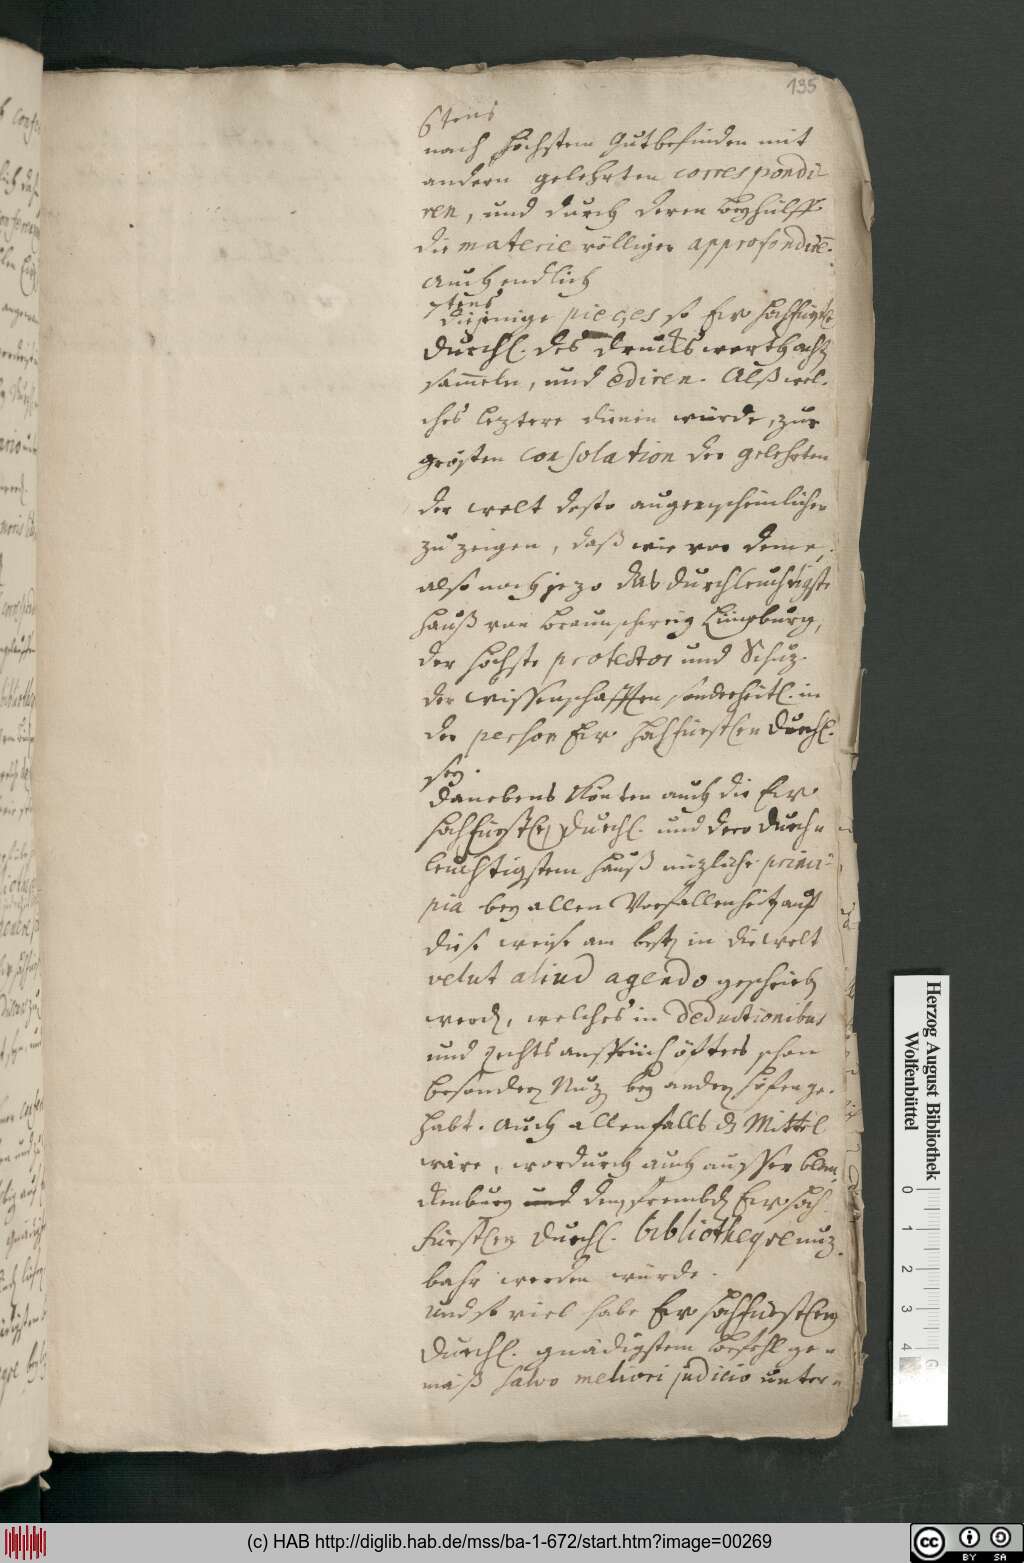 135
6tens
nach höchstem Gutbefinden mit
andern gelehrten correspondi-
ren, und durch deren beyhülff
die materie völliger approfondirē.
auch endlich
7tens
diejenige pieçes so Ew hochfürstl
Durchl. des drucks werth acht
sam̄eln, und ediren. Alß wel-
ches leztere dienen würde, zur
grösten consolation der gelehrten
der welt desto augenscheinlicher
zu zeigen, daß wie vor deme,
also noch jezo das durchleuchtigste
Hauß von braunschweig Lüneburg,
der höchste protector und Schuz
der wissenschafften, sonderheitl. in
der person Ew. hochfürstlen Durchl.
sey.
Danebens könten auch die Ew
hochfürstlen Durchl. und dero durch-
leuchtigstem Hauß nüzliche princi-
pia bey allen Vorfallenheitē auf
diese weise am bestē in die welt
velut aliud agendo geschriebē
werdē, welches in deductionibus
und rechts ansprüchē öfters schon
besondern Nuz bey andern höfen ge-
habt. Auch allenfalls dz Mittel
wäre, wordurch auch ausser blan-
kenburg und den frembdē Ew hoch-
fürstlen Durchl. bibliotheqve nuz-
bahr werden würde.
Und so viel habe Ew hochfürstlen
Durchl. gnädigstem befehl ge-
mäß salvo meliori judicio unter-
Herzog August Bibliothek
Wolfenbüttel
0
1
2
3
4
(c) HAB http://diglib.hab.de/mss/ba-1-672/start.htm?image=00269
cc BY SA